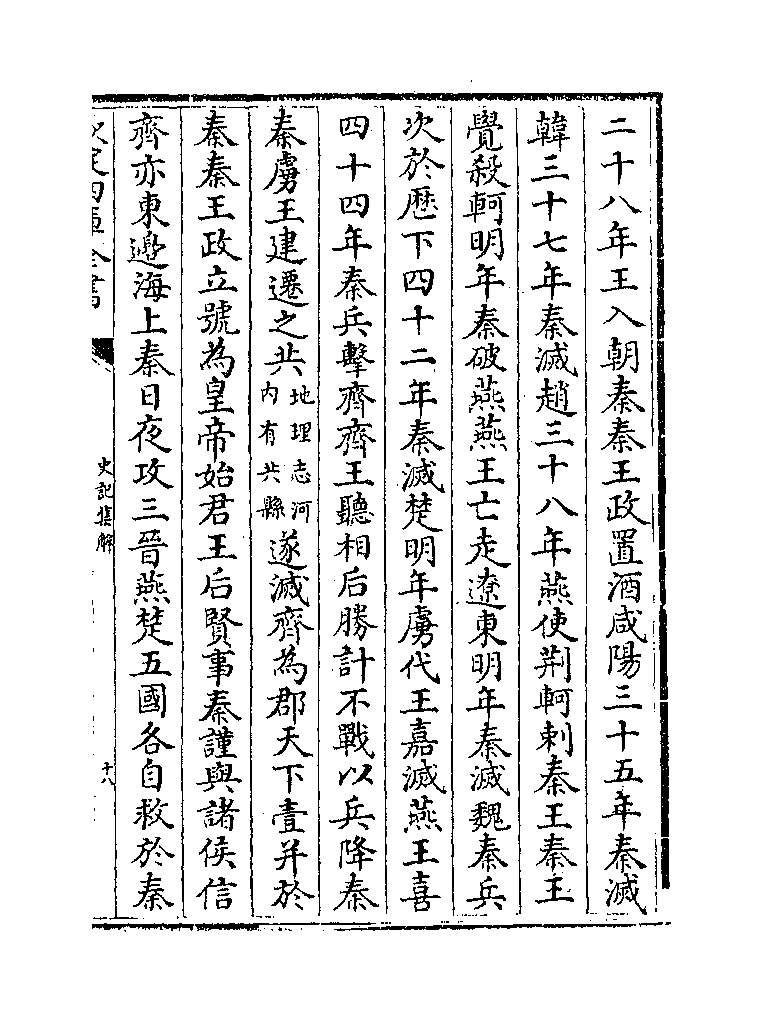 二十八年王入朝秦秦王政置酒咸陽三十五年秦滅
韓三十七年秦滅趙三十八年燕使荆軻刺秦王秦王
覺殺軻明年秦破燕燕王亡走遼東明年秦滅魏秦兵
次於歴下四十二年秦滅楚明年虜代王嘉滅燕王喜
四十四年秦兵擊齊齊王聽相后勝計不戰以兵降秦
秦虜王建遷之共地理志河內有共縣遂滅齊為郡天下壹并於
秦秦王政立號為皇帝始君王后賢事秦謹與諸侯信
齊亦東邉海上秦日夜攻三晉燕楚五國各自救於秦
欽定四庫全書
史記集解
十八